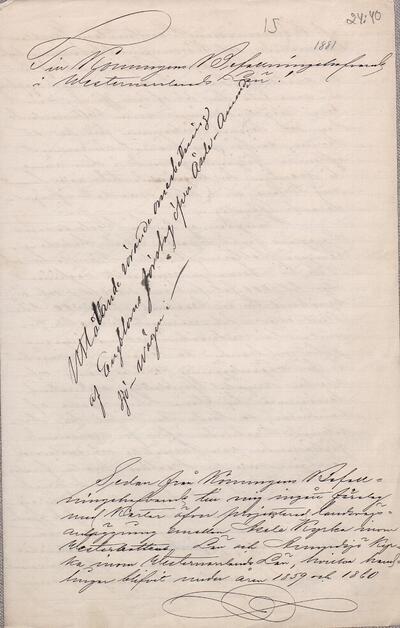 15
24:40
1881
Till Konungens Befallningshafvande
i Westernorrlands Län!
Utlåtande rörande omarbetning
af Engbloms förslag öfver Åsele-Anund-
sjö-vägen:
Sedan från Konungens Befall-
ningshafvande till mig ingått förslag
med Kartor öfver projekterad landsvägs-
anläggning emellan Åsele Kyrka inom
Westerbottens Län och Anundsjö Kyr-
ka inom Westernorrlands Län, hvilka hand-
lingar blifvit under åren 1859 och 1860